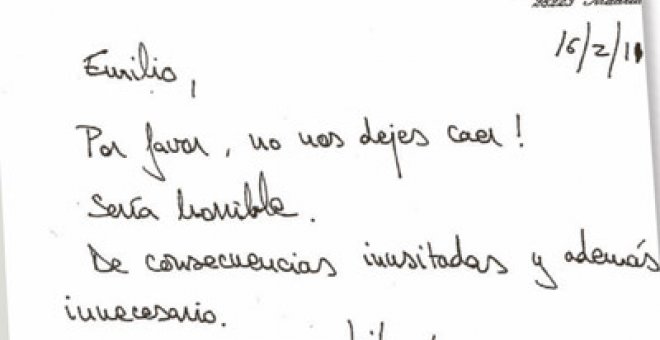 28223 - Madrid
16/2/11
Emilio,
Por favor, no nos dejes caer!
Sería horrible.
De consecuencias inusitadas y además
innecesario.